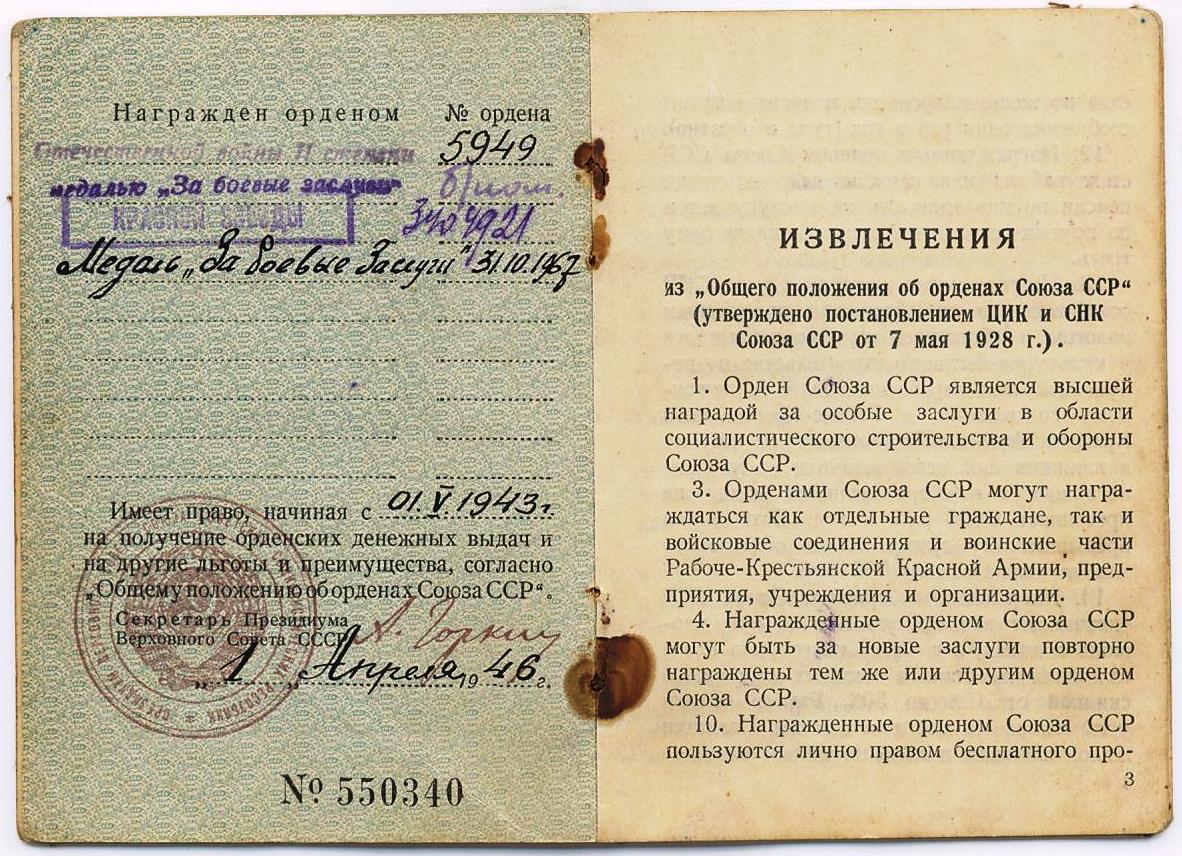 Награжден орденом № ордена
Отечественной войны II степени 5949
медалью „За боевые заслуги“ б/ном.
КРАСНОЙ ЗВЕЗДЫ 3404921
Медаль „За боевые Заслуги“ 31.10.1967
Имеет право, начиная с 01.V.1943г.
на получение орденских денежных выдач и
на другие льготы и преимущества, согласно
„Общему положению об орденах Союза ССР“.
Секретарь Президиума
Верховного Совета СССР А. Горкин
„1“ Апреля 1946 г.
№ 550340
ИЗВЛЕЧЕНИЯ
из „Общего положения об орденах Союза ССР“
(утверждено постановлением ЦИК и СНК
Союза ССР от 7 мая 1928 г.).
1. Орден Союза ССР является высшей
наградой за особые заслуги в области
социалистического строительства и обороны
Союза ССР.
3. Орденами Союза ССР могут награ-
ждаться как отдельные граждане, так и
войсковые соединения и воинские части
Рабоче-Крестьянской Красной Армии, пред-
приятия, учреждения и организации.
4. Награжденные орденом Союза ССР
могут быть за новые заслуги повторно
награждены тем же или другим орденом
Союза ССР.
10. Награжденные орденом Союза ССР
пользуются лично правом бесплатного про-
3